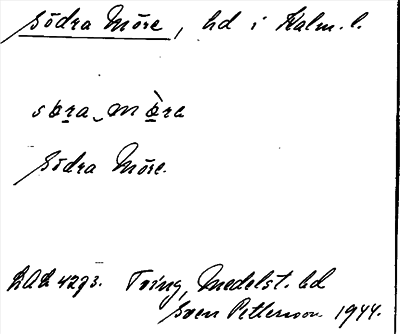 Södra Möre, hd i Kalm. l.
sø̱ra‿mø̱̀re
Södra Möre.
LAL 4293. Tving, Medelst. hd
Sven Petterson 1944.